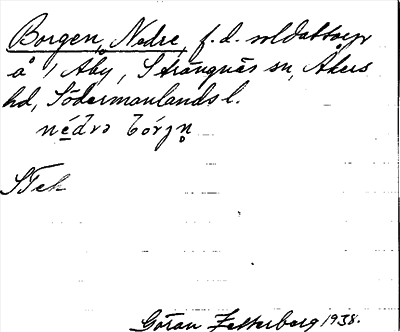 Borgen, Nedre, f.d. soldattorp
å 1 Åby, Strängnäs sn, Åkers
hd, Södermanlands l.
nẹ́drə bórgn̥
STek
Göran Zetterberg 1938.